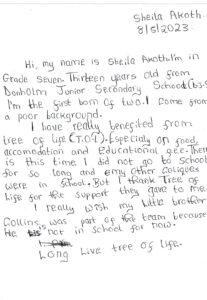 Sheila Akoth.
8/5/2023.
Hi, my name is Sheila Akoth.I'm in
Grade seven.Thirteen years old from
Donholm Junior Secondary School (J.S.S
I'm the first born of two. I come from
a poor background.
I have really benefited from
tree of life (T.O.L). Especially on food,
accomodation and Educational
is this time I did not go to School
for so long and my other
were in School. But I thank Tree of
Life for the support they gave to me.
I really wish my little brother
Collins was part of the team because
He is not in school for now.
Long Live tree of life.